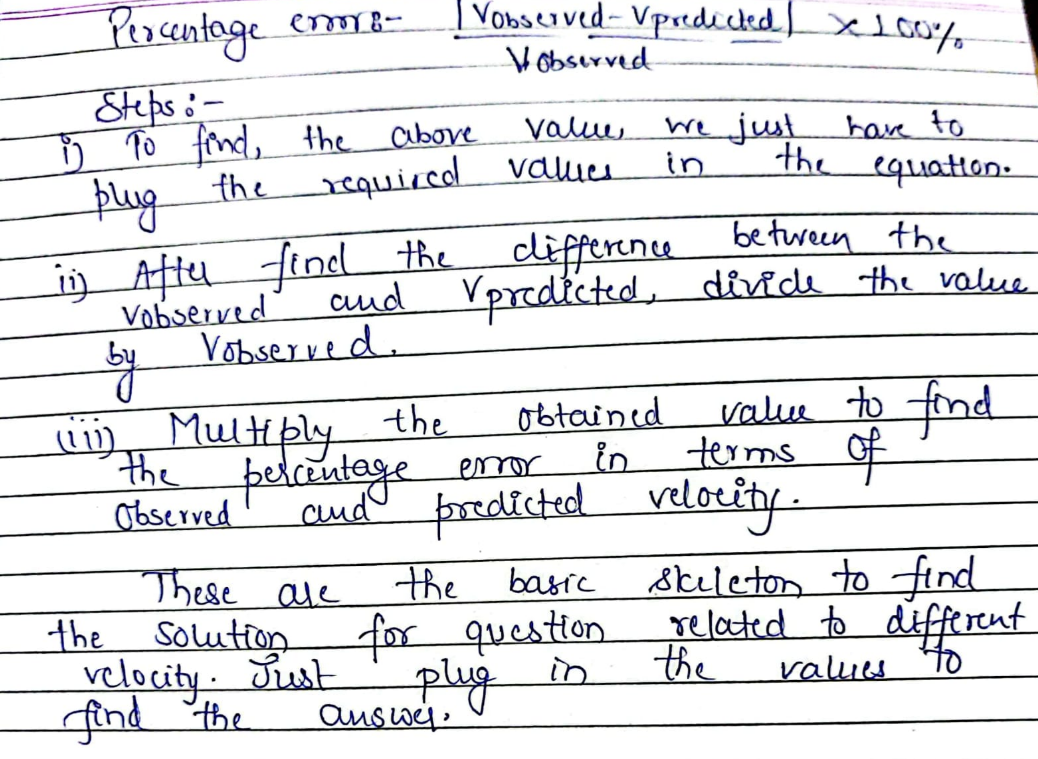 Percentage error:- |Vobserved-Vpredicted| x100%
Vobserved
Steps:-
i) To find, the above value, we just have to
plug the required values in the equation.
ii) After find the difference between the
Vobserved and Vpredicted, divide the value
by Vobserved.
(iii) Multiply the obtained value to find
the percentage error in terms of
Observed and predicted velocity.
These are the basic skeleton to find
the solution for question related to different
velocity. Just plug in the values to
find the answer.